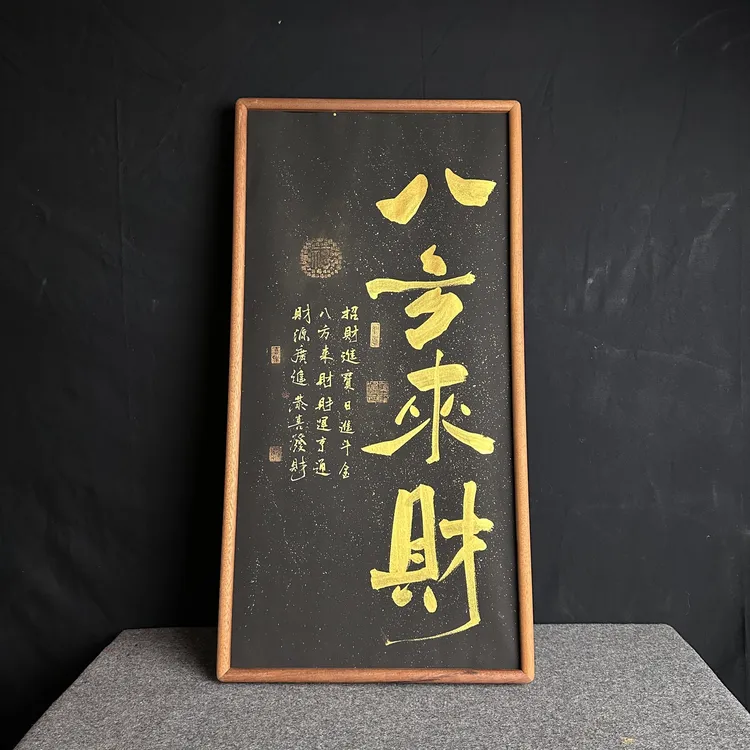 八方來財
招財進寶日進斗金
八方來財財運亨通
財源廣進恭喜發財